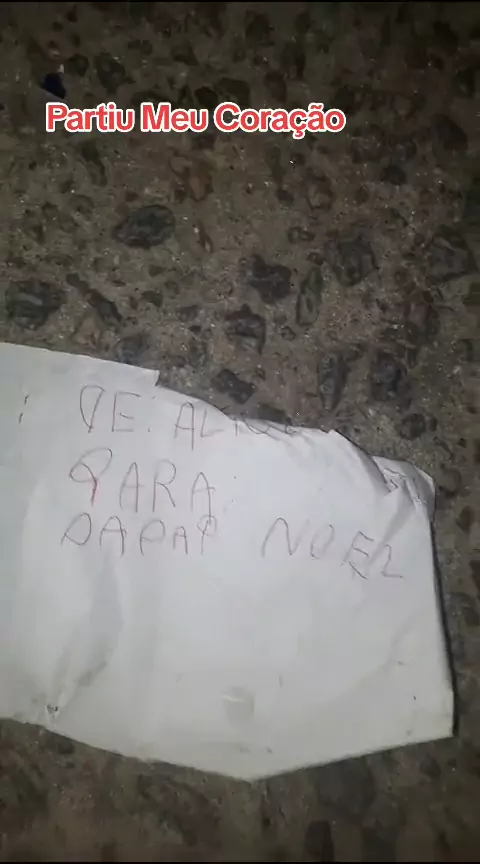 Partiu Meu Coração
DE:
PARA:
PAPAI NOEL